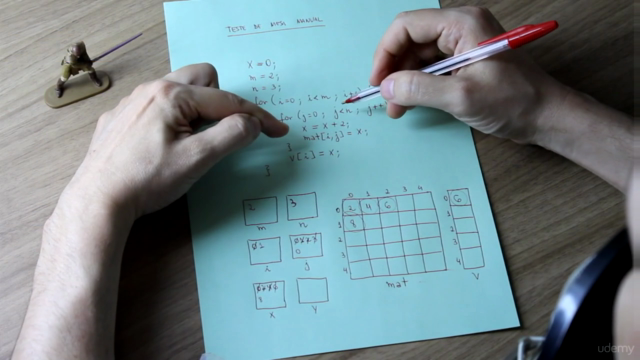 TESTE DE MESA MANUAL
x = 0;
m = 2;
n = 3;
for (i=0; i<m; i++)
for (j=0; j<n; j++
x = x + 2;
mat[i,j] = x;
}
v[i] = x;
}
0 1 2 3 4
2 3 0 2 4 6 0 6
m n 1 8 1
2 2
0 1 3 3
i j 0 4 4
mat v
8
x y
udemy